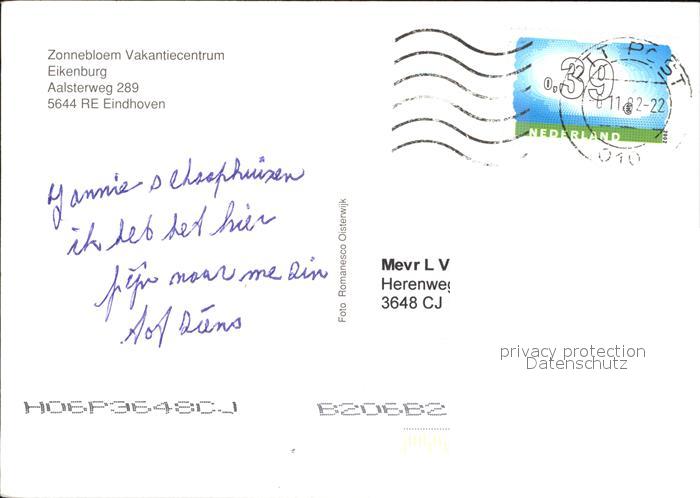 Zonnebloem Vakantiecentrum
Eikenburg
Aalsterweg 289
5644 RE Eindhoven
0,39
NEDERLAND
2002
PTT POST
11.02-22
010
Jannie schaaphuizen
ik heb het hier
fijn naar me zin
tot ziens
Foto Romanesco Oisterwijk
Mevr L V
Herenweg
3648 CJ
privacy protection
Datenschutz
HO6P3648CJ
B206B2